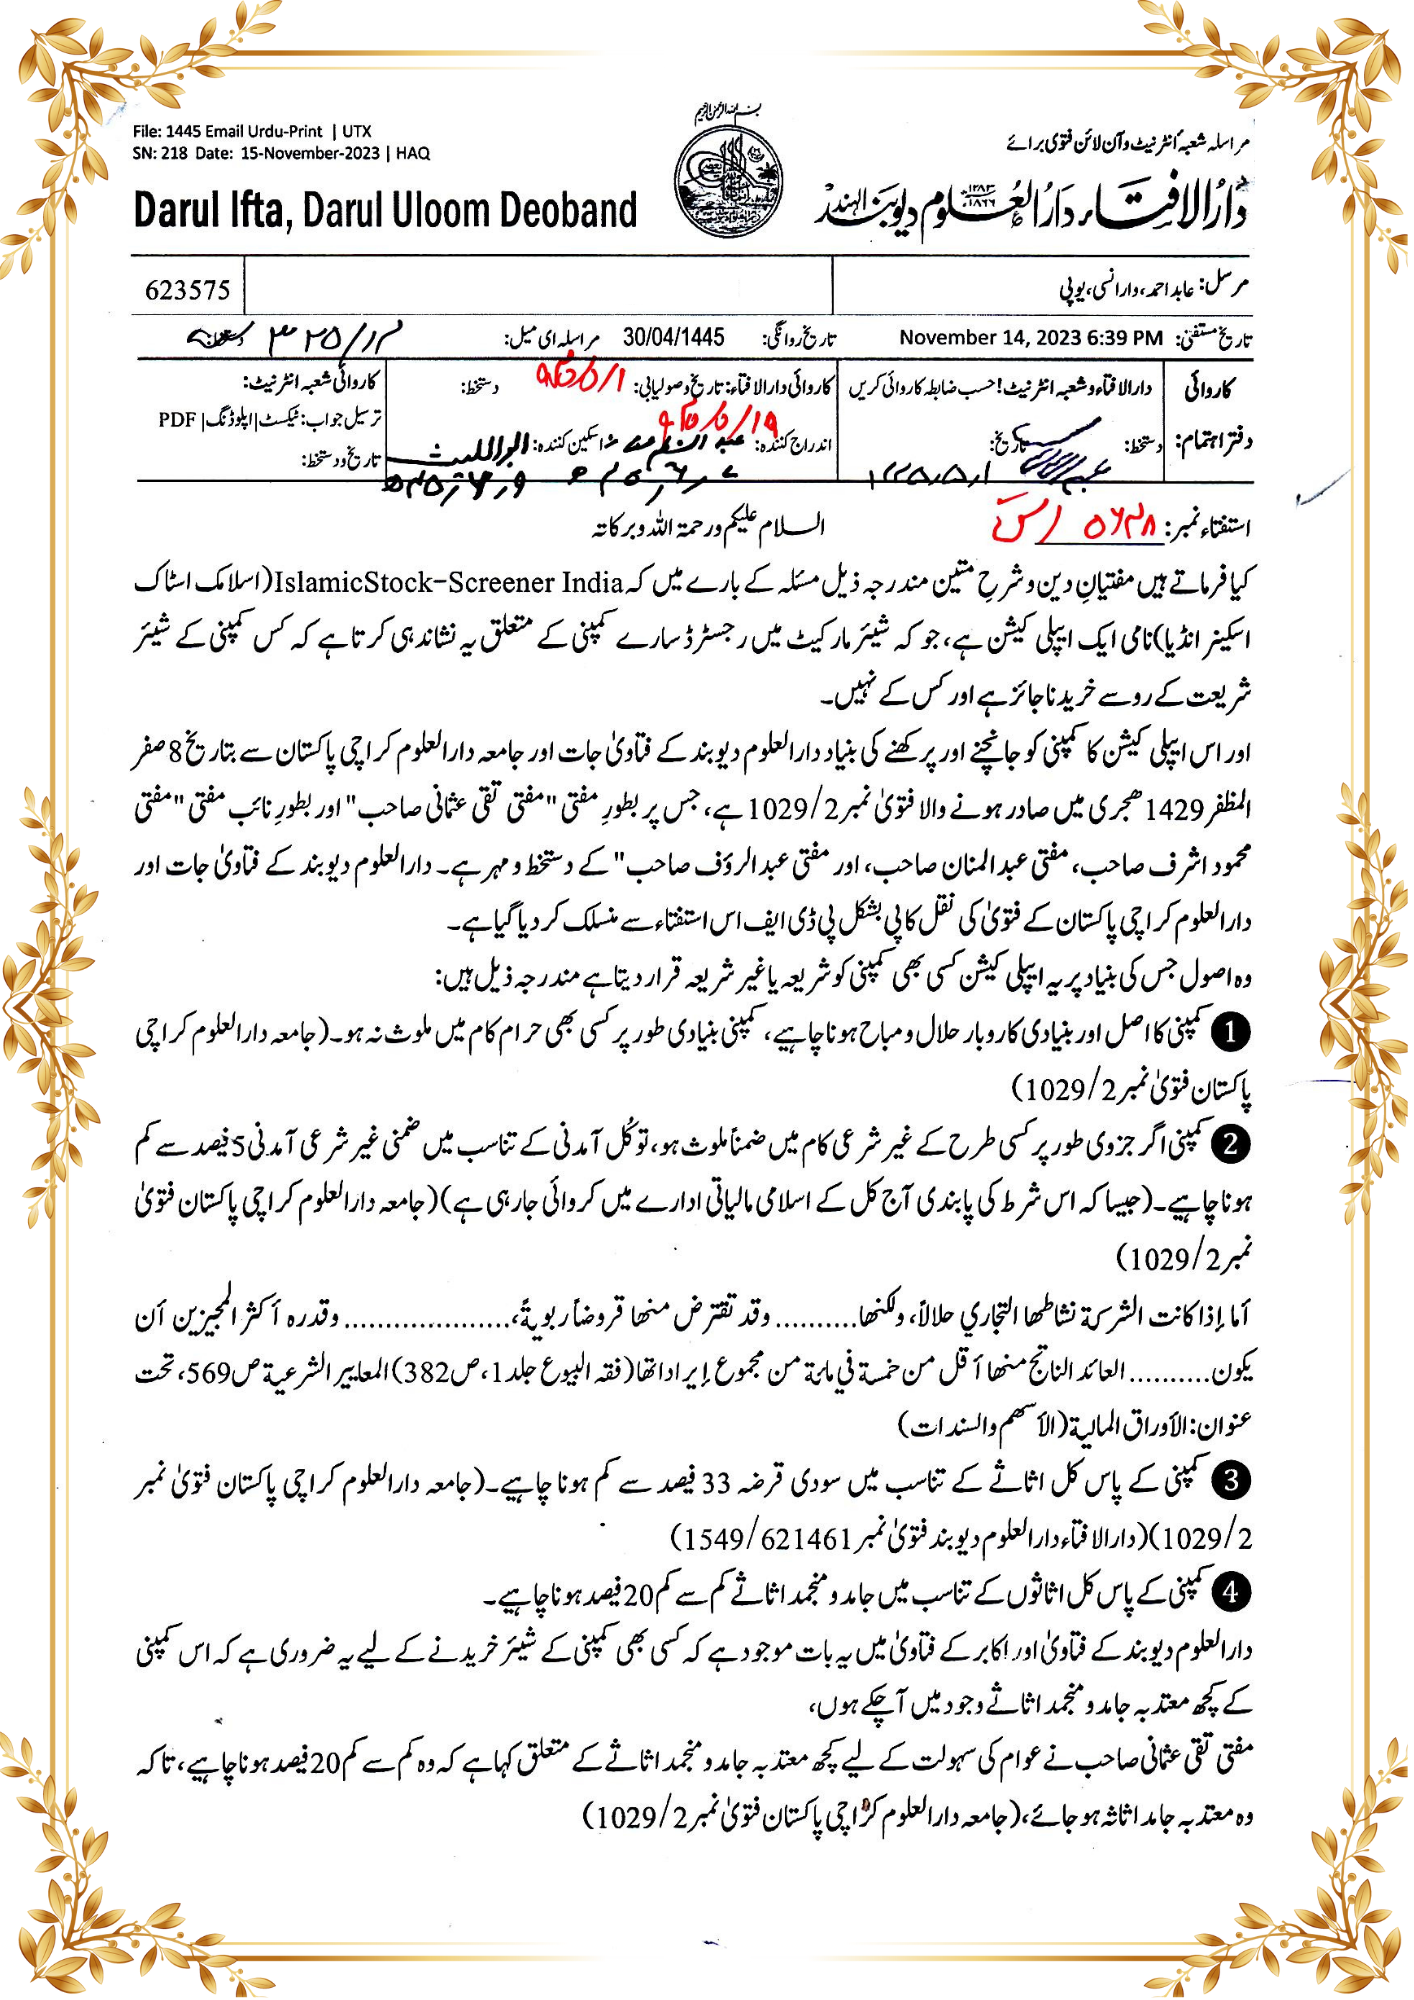 بسم اللہ الرحمن الرحیم
File: 1445 Email Urdu-Print | UTX
SN: 218 Date: 15-November-2023 | HAQ
مراسلہ شعبۂ انٹرنیٹ و آن لائن فتوی برائے
Darul Ifta, Darul Uloom Deoband
دارالافتاء دارالعلوم دیوبند الہند
مرسل: عابد احمد، وارانسی، یوپی
623575
تاریخ مستفتی: November 14, 2023 6:39 PM
تاریخ روانگی: 30/04/1445
مراسلہ ای میل:
کاروائی
دفتر اہتمام:
دارالافتاء و شعبہ انٹرنیٹ! حسب ضابطہ کاروائی کریں
دستخط: تاریخ:
کاروائی دارالافتاء: تاریخ وصولیابی: دستخط:
اندراج کنندہ: اسکین کنندہ:
کاروائی شعبہ انٹرنیٹ:
ترسیل جواب: ٹیکسٹ|اپلوڈنگ| PDF
تاریخ و دستخط:
استفتاء نمبر:
السلام علیکم ورحمۃ اللہ وبرکاتہ
کیا فرماتے ہیں مفتیانِ دین و شرحِ متین مندرجہ ذیل مسئلہ کے بارے میں کہ IslamicStock-Screener India(اسلامک اسٹاک
اسکینر انڈیا) نامی ایک ایپلی کیشن ہے، جو کہ شیئر مارکیٹ میں رجسٹرڈ سارے کمپنی کے متعلق یہ نشاندہی کرتا ہے کہ کس کمپنی کے شیئر
شریعت کے رو سے خریدنا جائز ہے اور کس کے نہیں۔
اور اس ایپلی کیشن کا کمپنی کو جانچنے اور پرکھنے کی بنیاد دارالعلوم دیوبند کے فتاویٰ جات اور جامعہ دارالعلوم کراچی پاکستان سے بتاریخ 8 صفر
المظفر 1429 ھجری میں صادر ہونے والا فتویٰ نمبر 1029/2 ہے، جس پر بطورِ مفتی "مفتی تقی عثمانی صاحب" اور بطورِ نائب مفتی "مفتی
محمود اشرف صاحب، مفتی عبد المنان صاحب، اور مفتی عبد الرؤف صاحب" کے دستخط و مہر ہے۔ دارالعلوم دیوبند کے فتاویٰ جات اور
دارالعلوم کراچی پاکستان کے فتویٰ کی نقل کاپی بشکل پی ڈی ایف اس استفتاء سے منسلک کر دیا گیا ہے۔
وہ اصول جس کی بنیاد پر یہ ایپلی کیشن کسی بھی کمپنی کو شریعہ یا غیر شریعہ قرار دیتا ہے مندرجہ ذیل ہیں:
1 کمپنی کا اصل اور بنیادی کاروبار حلال و مباح ہونا چاہیے، کمپنی بنیادی طور پر کسی بھی حرام کام میں ملوث نہ ہو۔ (جامعہ دارالعلوم کراچی
پاکستان فتویٰ نمبر 1029/2)
2 کمپنی اگر جزوی طور پر کسی طرح کے غیر شرعی کام میں ضمناً ملوث ہو، تو کُل آمدنی کے تناسب میں ضمنی غیر شرعی آمدنی 5 فیصد سے کم
ہونا چاہیے۔ (جیسا کہ اس شرط کی پابندی آج کل کے اسلامی مالیاتی ادارے میں کروائی جا رہی ہے) (جامعہ دارالعلوم کراچی پاکستان فتویٰ
نمبر 1029/2)
أما إذا كانت الشركة نشاطها التجاري حلالاً، ولكنها.......... وقد تقترض منها قروضاً ربويةً،.................... وقدره أكثر المجيزين أن
يكون.......... العائد الناتج منها أقل من خمسة في مائة من مجموع إيراداتها (فقه البيوع جلد 1، ص 382) المعايير الشرعية ص 569، تحت
عنوان: الأوراق المالية (الأسهم والسندات)
3 کمپنی کے پاس کل اثاثے کے تناسب میں سودی قرضہ 33 فیصد سے کم ہونا چاہیے۔ (جامعہ دارالعلوم کراچی پاکستان فتویٰ نمبر
1029/2) (دارالافتاء دارالعلوم دیوبند فتویٰ نمبر 1549/621461)
4 کمپنی کے پاس کل اثاثوں کے تناسب میں جامد و منجمد اثاثے کم سے کم 20 فیصد ہونا چاہیے۔
دارالعلوم دیوبند کے فتاویٰ اور اکابر کے فتاویٰ میں یہ بات موجود ہے کہ کسی بھی کمپنی کے شیئر خریدنے کے لیے یہ ضروری ہے کہ اس کمپنی
کے کچھ معتد بہ جامد و منجمد اثاثے وجود میں آچکے ہوں،
مفتی تقی عثمانی صاحب نے عوام کی سہولت کے لیے کچھ معتد بہ جامد و منجمد اثاثے کے متعلق کہا ہے کہ وہ کم سے کم 20 فیصد ہونا چاہیے، تاکہ
وہ معتد بہ جامد اثاثہ ہو جائے، (جامعہ دارالعلوم کراچی پاکستان فتویٰ نمبر 1029/2)